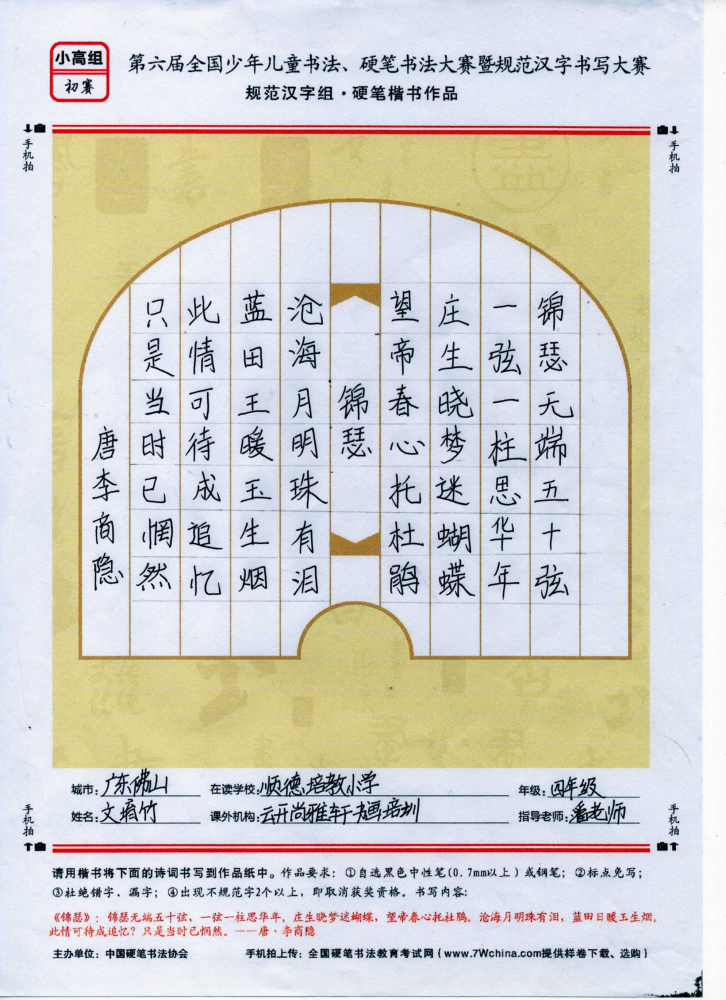 小高组
初赛
第六届全国少年儿童书法、硬笔书法大赛暨规范汉字书写大赛
规范汉字组·硬笔楷书作品
手机拍
手机拍
锦瑟无端五十弦
一弦一柱思华年
庄生晓梦迷蝴蝶
望帝春心托杜鹃
锦瑟
沧海月明珠有泪
蓝田王暖玉生烟
此情可待成追忆
只是当时已惘然
唐李商隐
城市：广东佛山 在读学校：顺德培教小学 年级：四年级
姓名：文 竹 课外机构：云开尚雅轩书画培训 指导老师：潘老师
手机拍
手机拍
请用楷书将下面的诗词书写到作品纸中。作品要求：①自选黑色中性笔(0.7mm以上)或钢笔；②标点免写；
③杜绝错字、漏字；④出现不规范字2个以上，即取消获奖资格。书写内容：
《锦瑟》：锦瑟无端五十弦，一弦一柱思华年。庄生晓梦迷蝴蝶，望帝春心托杜鹃。沧海月明珠有泪，蓝田日暖玉生烟。
此情可待成追忆？只是当时已惘然。——唐·李商隐
主办单位：中国硬笔书法协会 手机拍上传：全国硬笔书法教育考试网(www.7Wchina.com提供样卷下载、选购)